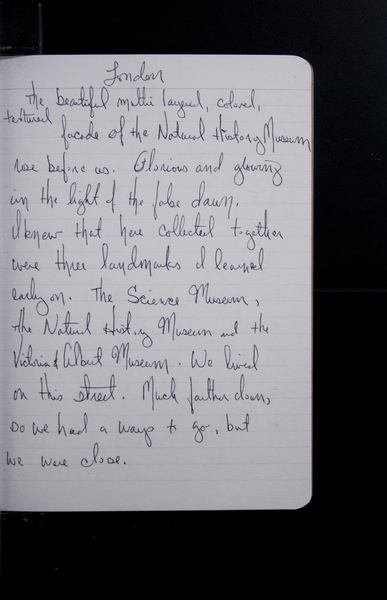 London
The beautiful multi layered, colored,
textured
facade of the Natural History Museum
rose before us. Glorious and glowing
in the light of the false dawn.
I knew that here collected together
were three landmarks I learned
early on. The Science Museum,
the Natural History Museum and the
Victoria & Albert Museum. We lived
on this street. Much farther down,
so we had a ways to go, but
we were close.